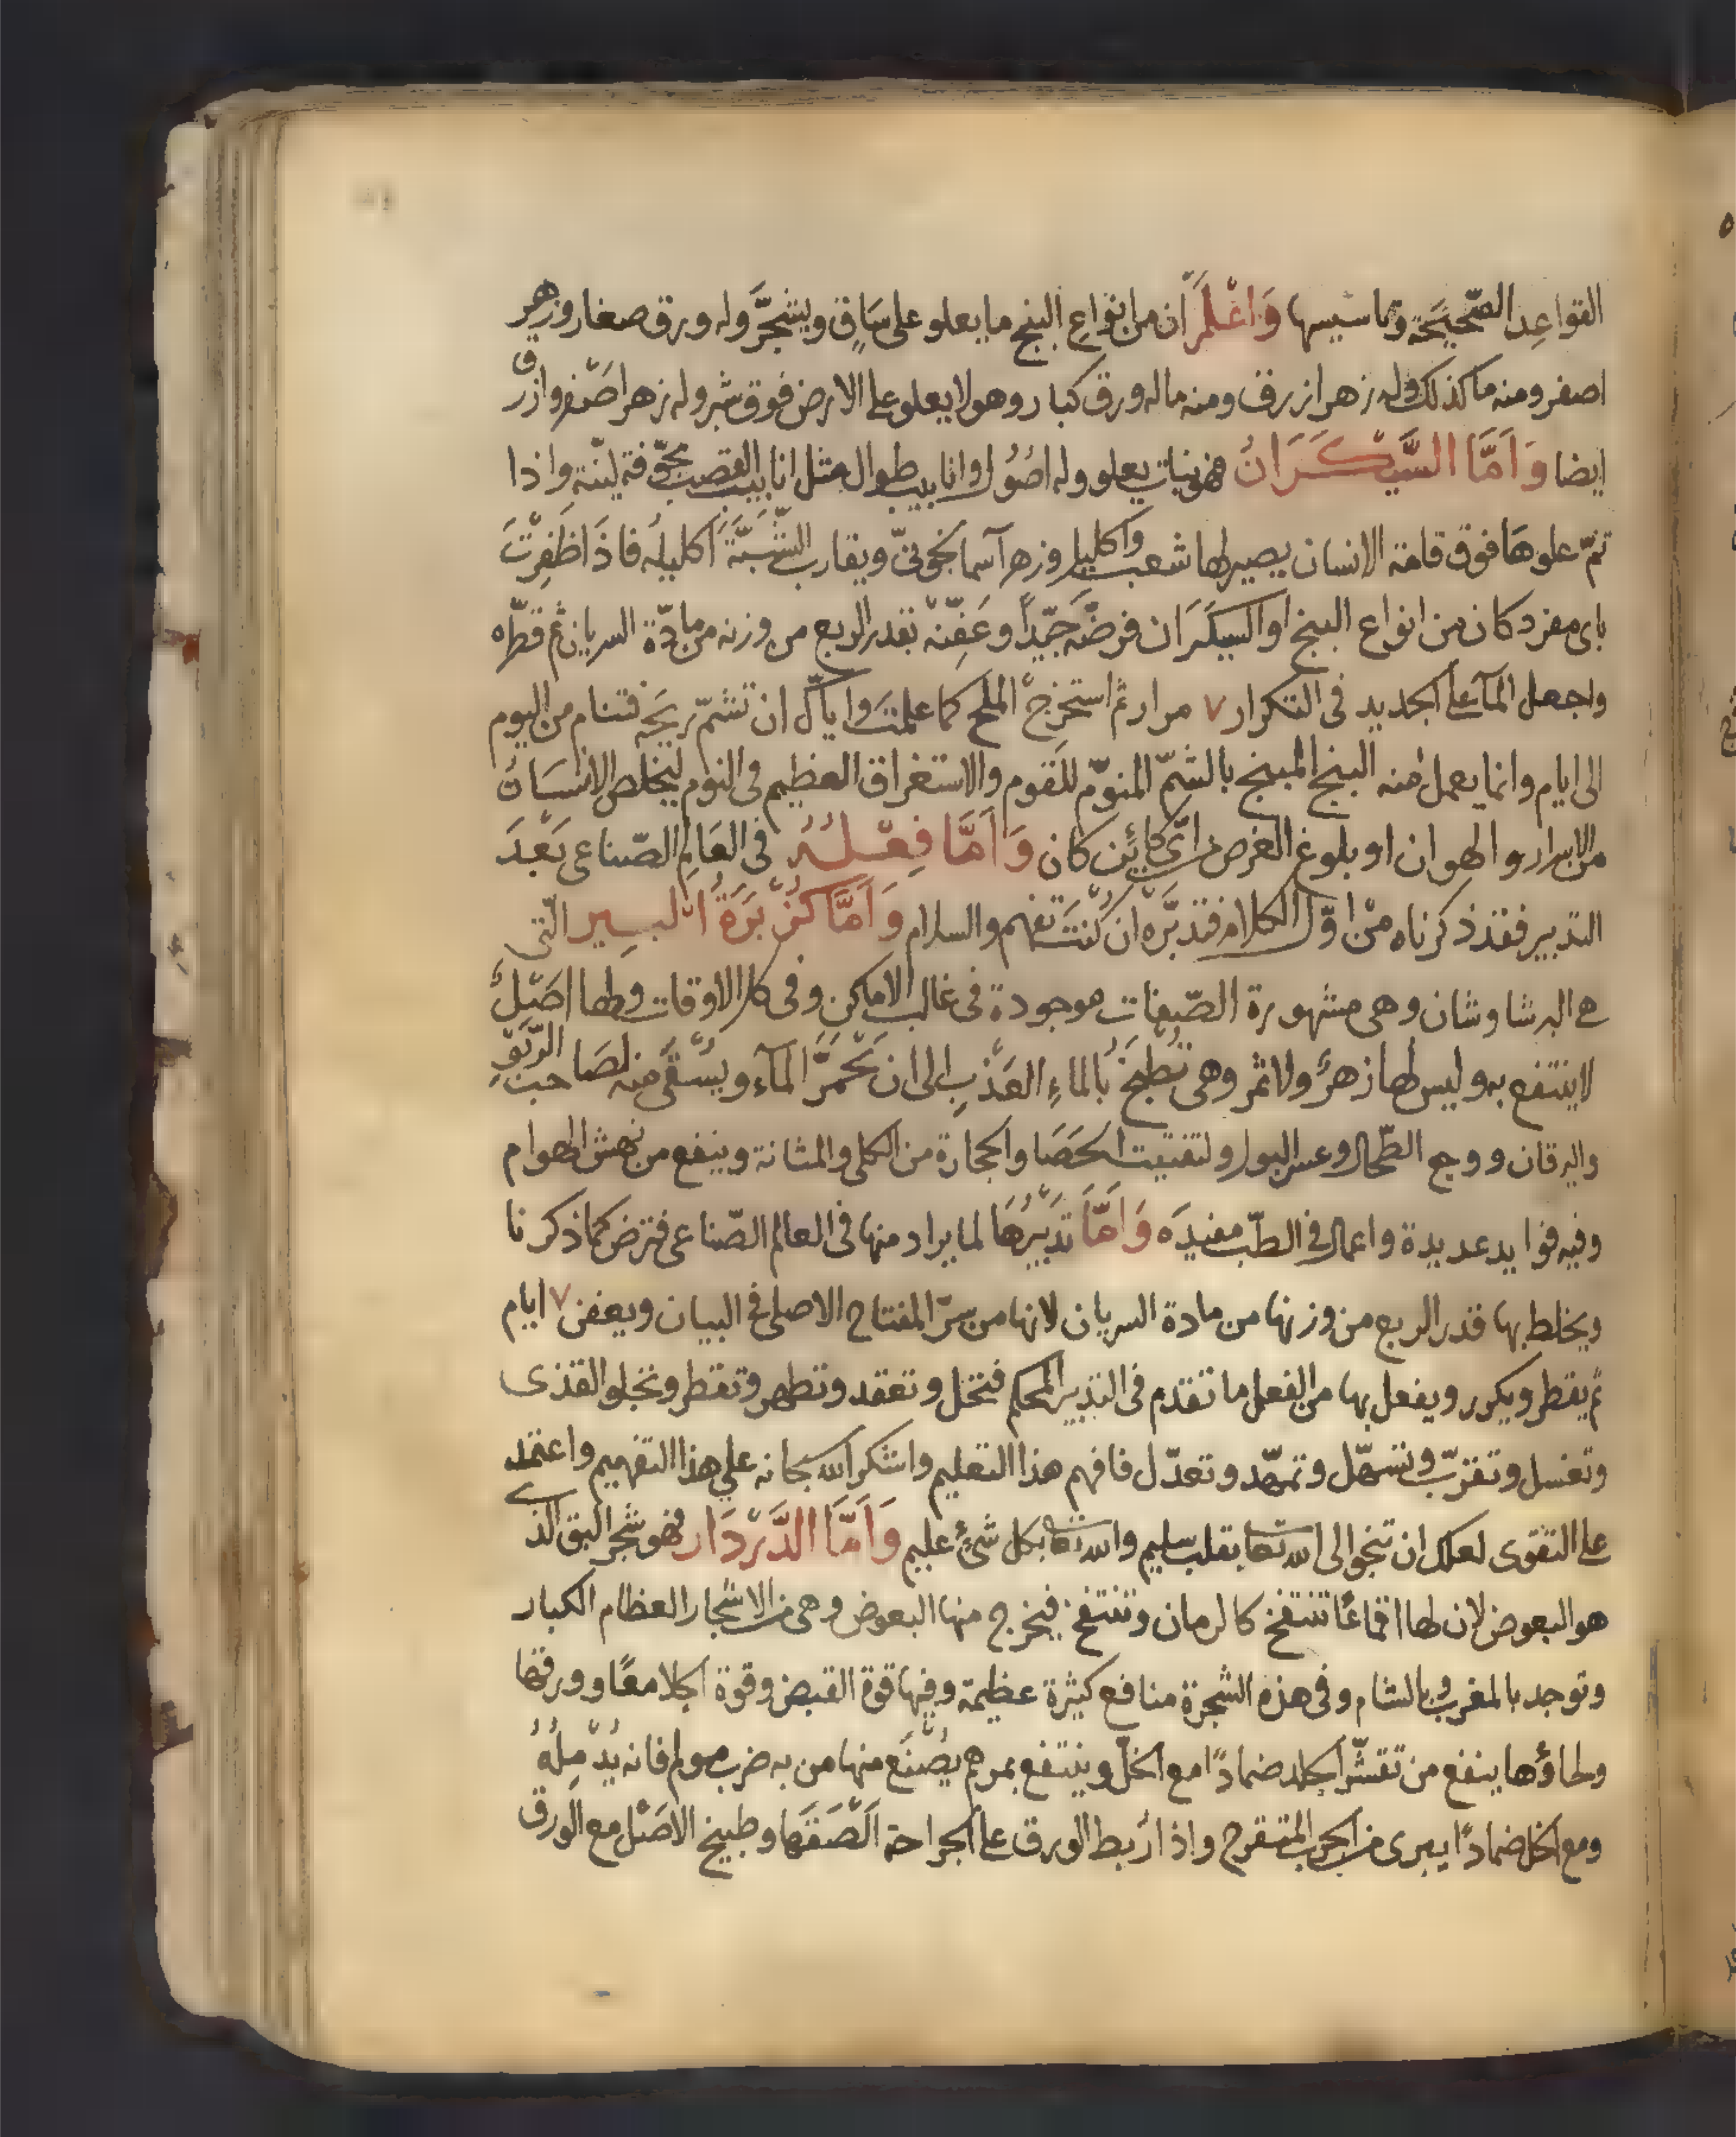 القواعِد الصَّحيحَة وتاسيسها وَاعْلَمْ ان من انواعِ البنج ما يعلو على سَاقٍ ويشجَّر وله ورق صغار وزهر
اصفر ومنه ما كذلك وله زهر ازرق ومنه ماله ورق كبار وهو لا يعلو على الارض فوق شبر وله زهر اصْفر وازرق
ايضا وَاَمَّا السَّيْكَرَانُ فهو نبات يعلو وله اصُوُل وانابيب طوال مثل انابيب القصب مجوّفة ليّنة واذا
تمّ علوهَا فوق قامة الانسان يصير لها شعب واكليل وزهر آسمانجونىّ ويقارب الشَّبَّةَ اكليلُه فاذَا ظَفِرْتَ
باى مفرد كان من انواع البنج او السيكَرَان فرضّه جَيّداً وعَفِّنْه بقدر الربع من وزنه من مادّة السريان ثم قطّره
واجعل المآ على الجديد فى التكرار ٧ مرار ثم استخرج الملح كما علمتَ واياك ان تشمّ ريحَه فتنام من اليوم
الى ايام وانما يعمل منه البنج المبنج بالشمّ المنوّم للقوم والاستغراق العظيم فى النوم ليخلص الانسَانُ
من الاسرار والهوان او بلوغ الغرض من اىّ كائِن كان وَاَمَّا فِعْلُهُ فى العَالِم الصّناعى بَعْدَ
التدبير فقد ذكرناه مِنْ اوّل الكلام فتدبَّرْه ان كُنْتَ تفهم والسلام وَاَمَّا كُزْبَرَةُ البِير الّتى
هى البرشاوشان وهى مشهورة الصّفات موجودة فى غالب الاماكن وفى كل الاوقات ولها اصْلٌ
لا ينتفع به وليس لها زهرٌ ولا ثمر وهى تُطْبَخُ بالماءِ العَذْبِ الى ان يَحْمَرَّ المآء ويُسْقَى منه لصَاحب الرّبْوِ
واليرقان ووجع الطّحال وعسر البول ولتفتيت الحصَا والحجارة من الكلى والمثانة وينفع من نهش الهوام
وفيه فوايد عديدة واعمال فى الطبّ مفيدَه وَاَمَّا تَدْبِيْرُهَا لما يراد منها فى العالم الصّناعى فترض كما ذكرنا
ويخلط بها قدر الربع من وزنها من مادة السريان لانها من سرّ المفتاح الاصلى فى البيان ويعفن ٧ ايام
ثم يقطر ويكرر ويفعل بها من الفعل ما تقدم فى التدبير المحكم فتحل وتعقد وتطهر وتقطر وتجلو القذى
وتغسل وتقرّب وتسهّل وتمهّد وتعدّل فافهم هذا التعليم واشكر الله سبحانه على هذا التفهيم واعتمد
على التقوى لعلك ان تنجو الى الله تعا بقلب سليم والله تعا بكل شئٍ عليم وَاَمَّا الدَّرْدَار فهو شجر البق الذى
هو البعوض لان لها اقماعًا تنتفخ كالرمان وتنتفخ فيخرج منها البعوض وهى من الاشجار العظام الكبار
وتوجد بالمغرب وبالشام وفى هذه الشجرة منافع كثيرة عظيمة وفيها قوة القبض وقوة الجلا معًا وورقها
ولحاؤها ينفع من تقشّر الجلد ضمادًا مع الخلّ وينتفع بمرهم يُصْنَع منها من به ضرب مولم فانه يُدْمِلُهُ
ومع الخل ضمادًا يبرى من الجرب المتقرح واذا رُبط الورق على الجراحة اَلْصَقَهَا وطبيخ الاصْل مع الورق